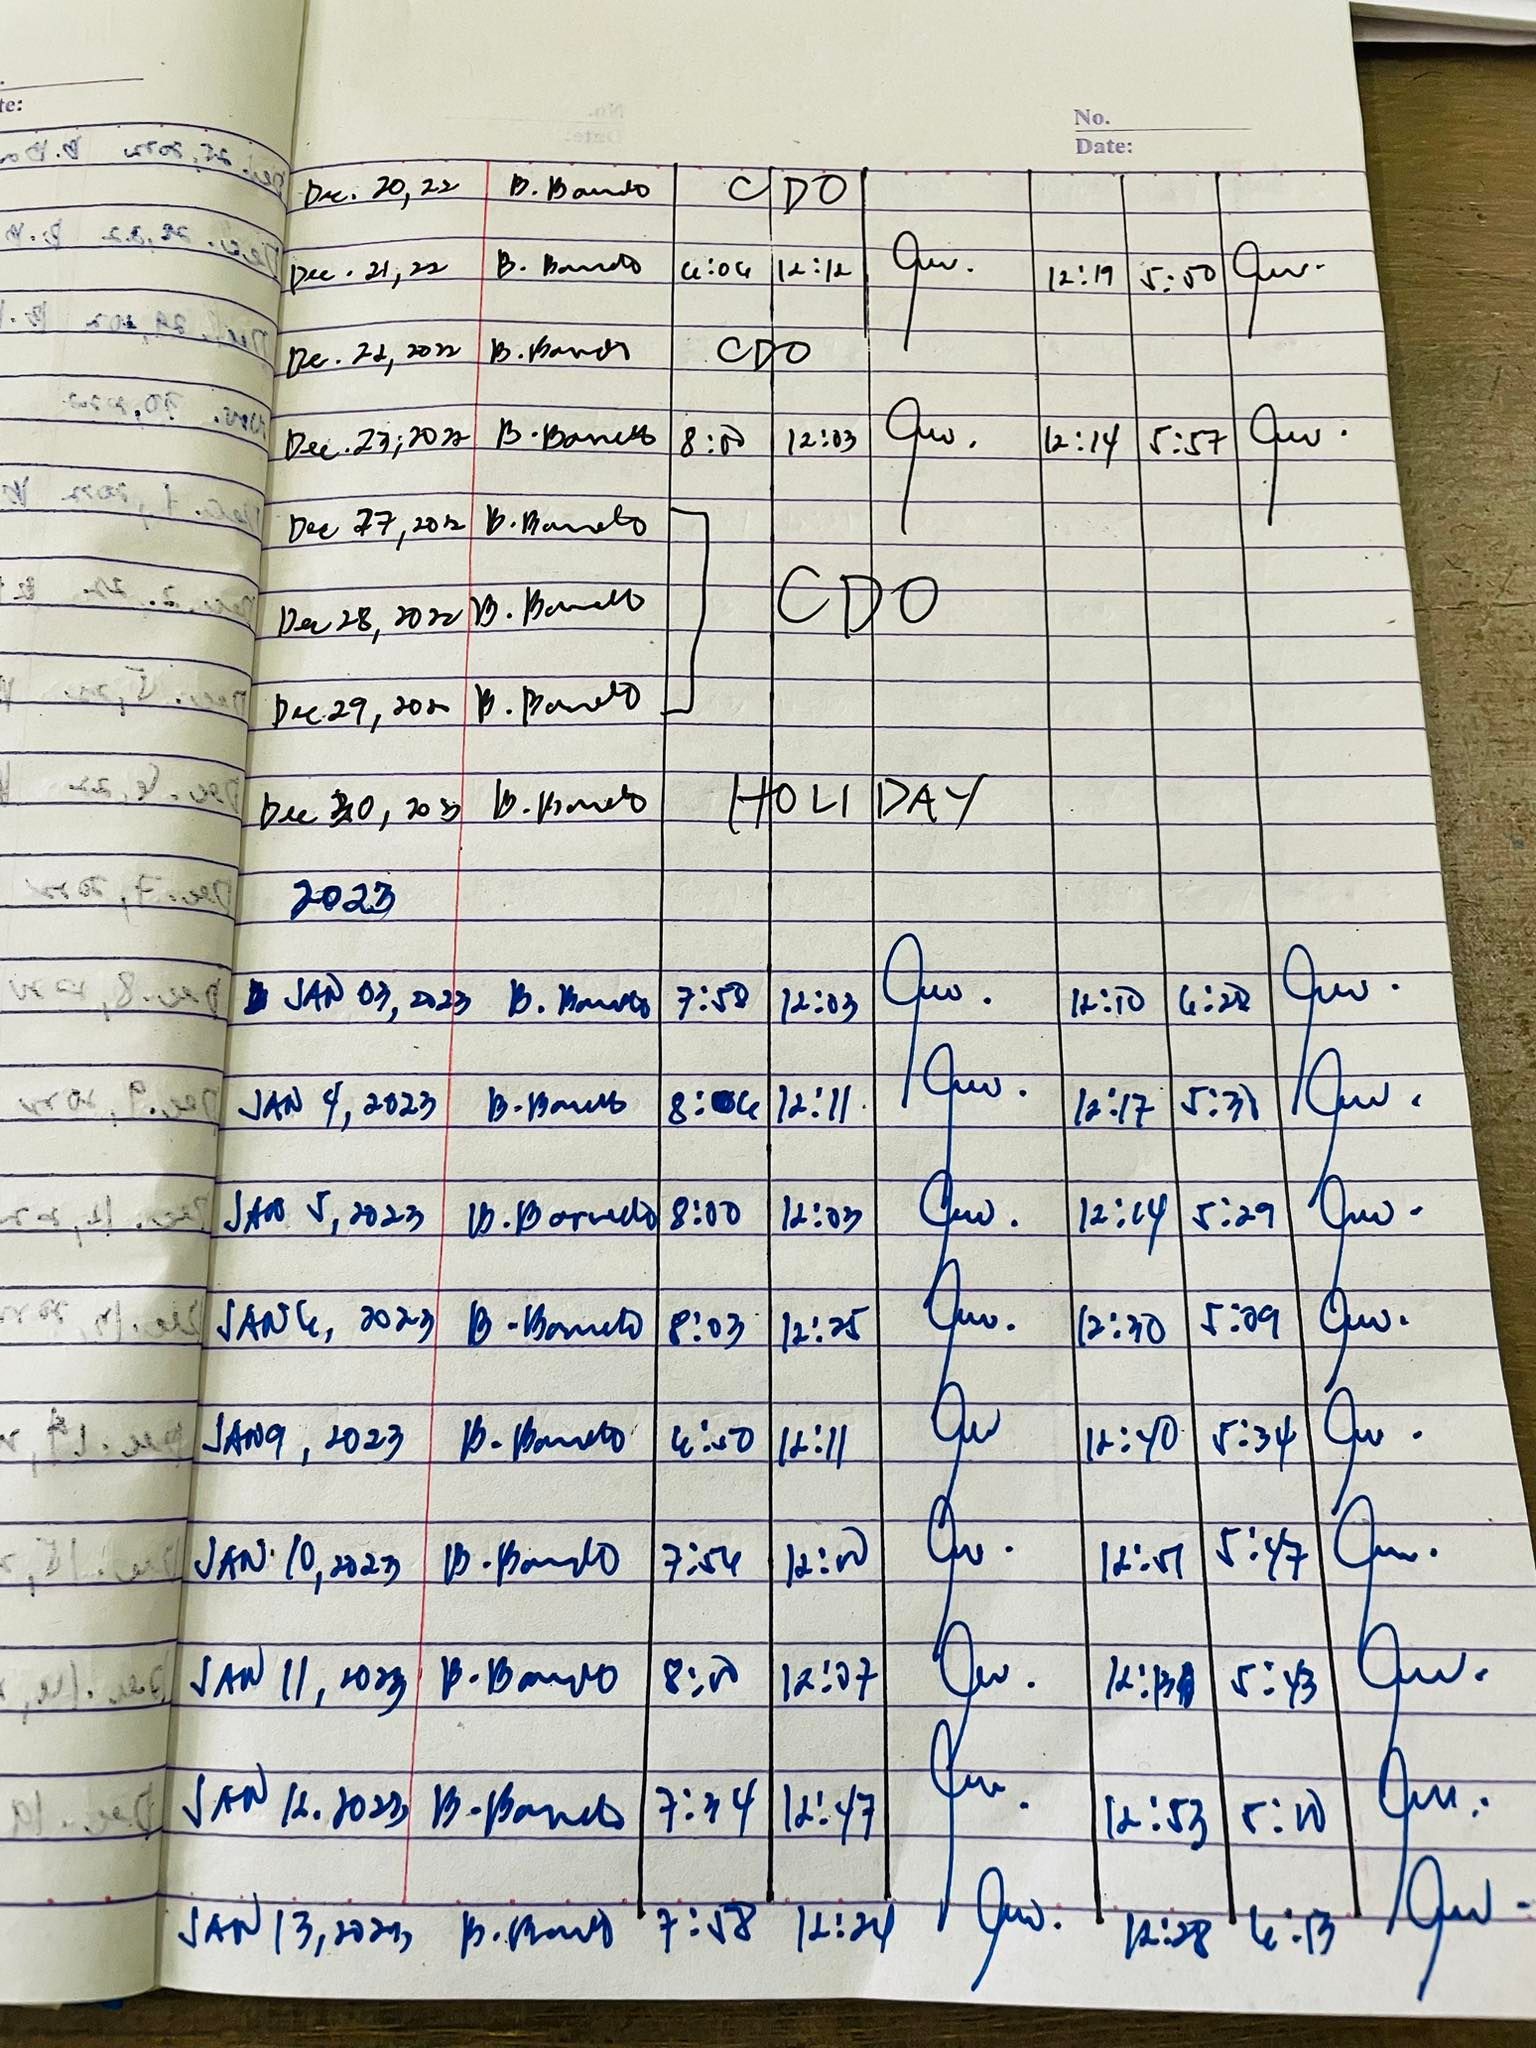 No.
Date:
Dec. 20, 22 B. Barreto CDO
Dec. 21, 22 B. Barreto 6:06 12:12 12:19 5:50
Dec. 22, 2022 B. Barreto CDO
Dec. 23, 2022 B. Barreto 8:00 12:03 12:14 5:57
Dec 27, 2022 B. Barreto
Dec 28, 2022 B. Barreto CDO
Dec 29, 2022 B. Barreto
Dec 30, 2022 B. Barreto HOLIDAY
2023
JAN 03, 2023 B. Barreto 7:50 12:03 12:10 6:28
JAN 4, 2023 B. Barreto 8:06 12:11 12:17 5:38
JAN 5, 2023 B. Barreto 8:00 12:03 12:14 5:29
JAN 6, 2023 B. Barreto 8:03 12:25 12:30 5:09
JAN 9, 2023 B. Barreto 6:50 12:11 12:40 5:34
JAN. 10, 2023 B. Barreto 7:56 12:00 12:51 5:47
JAN 11, 2023 B. Barreto 8:00 12:07 5:43
JAN 12. 2023 B. Barreto 7:34 12:47 12:53 5:10
JAN 13, 2023 B. Barreto 7:58 12:24 12:28 6:13